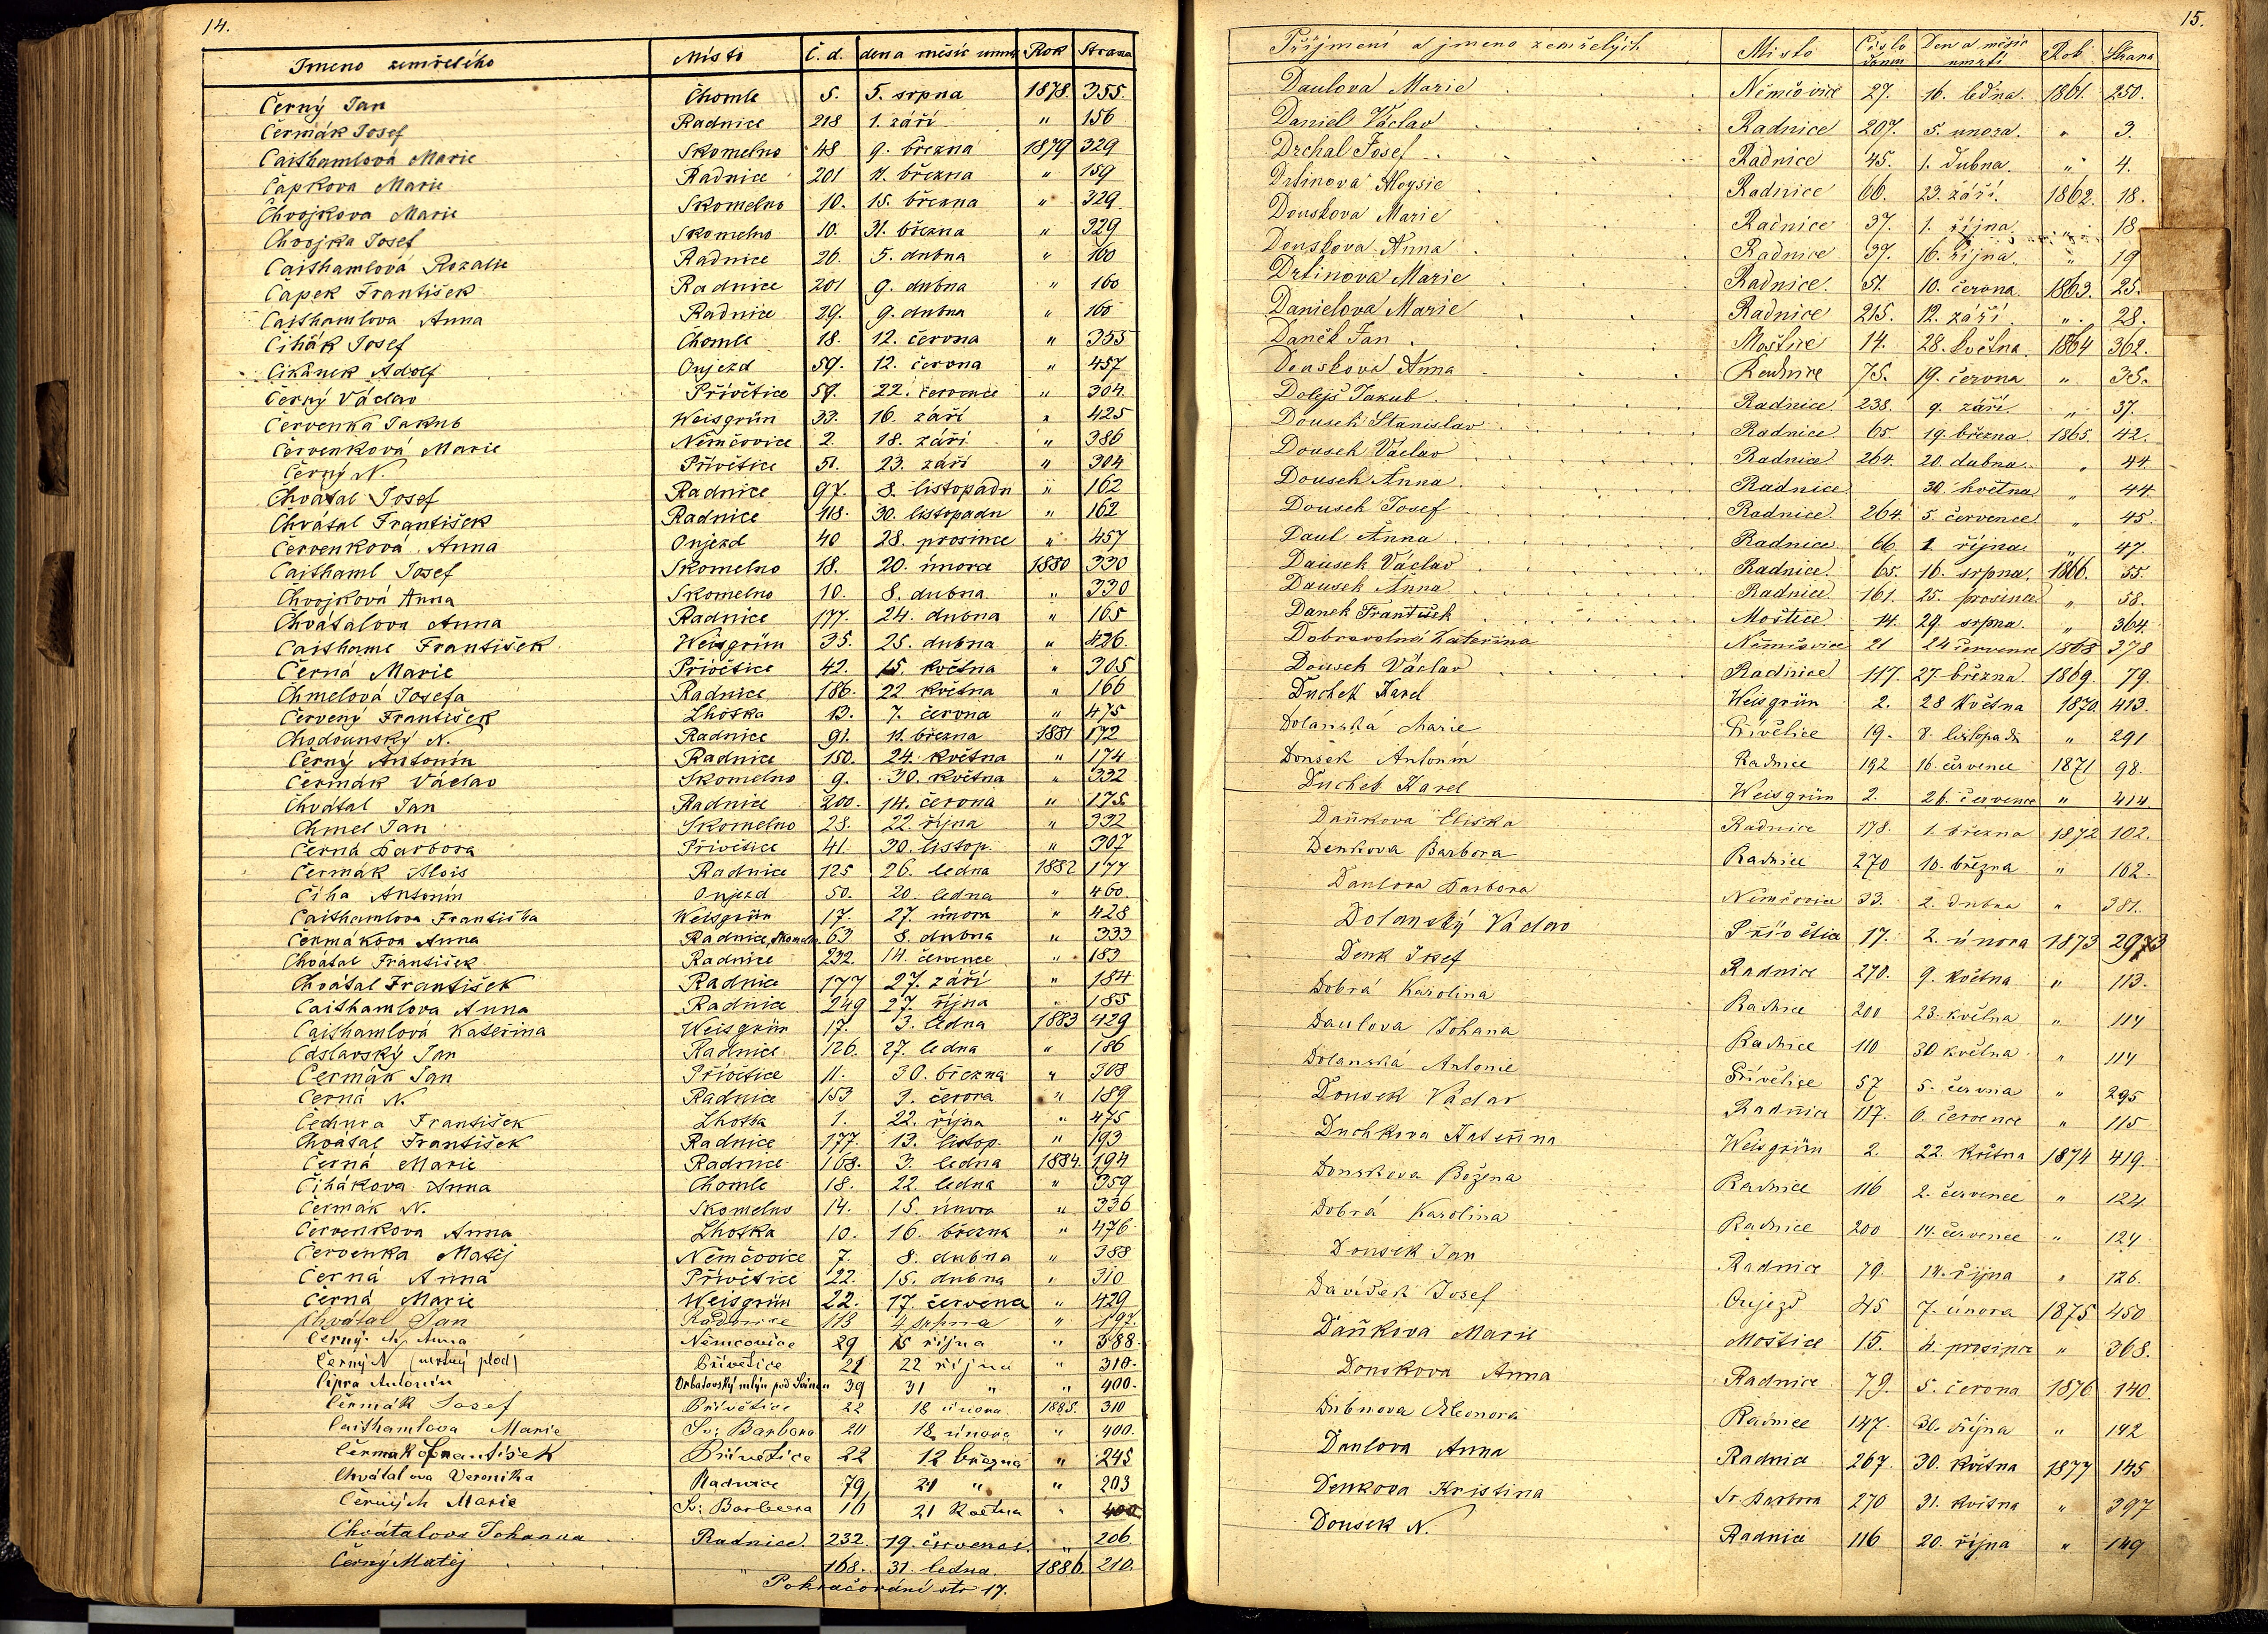 14.
Jmeno zemřelého Místo Č. d. den a měsíc úmrtí Rok Strana
Černý Jan Chomle 5. 5. srpna 1878. 355.
Čermák Josef Radnice 218 1. září " 156
Caithamlová Marie Skomelno 48 9. března 1879 329
Čapkova Marie Radnice 201 11. března " 159
Chvojkova Marie Skomelno 10. 15. března " 329
Chvojka Josef Skomelno 10. 31. března " 329
Caithamlová Rozalie Radnice 26. 5. dubna " 160
Čapek František Radnice 201 9. dubna " 160
Caithamlova Anna Radnice 29. 9. dubna " 160
Čihák Josef Chomle 18. 12. června " 355
Cikánek Adolf Onjezd 59. 12. června " 457
Černý Václav Přívětice 59. 22. července " 304.
Červenka Jakub Weisgrün 33. 16. září " 425
Červenková Marie Němčovice 2. 18. září " 386
Černý N. Přívětice 51. 23. září " 304
Chvátal Josef Radnice 97. 8. listopadu " 162
Chvátal František Radnice 118. 30. listopadu " 162
Červenková Anna Onjezd 40 28. prosince " 457
Caithaml Josef Skomelno 18. 20. února 1880 330
Chvojková Anna Skomelno 10. 8. dubna " 330
Chvátalova Anna Radnice 177. 24. dubna " 165
Caithaml František Weisgrün 35. 25. dubna " 426.
Černá Marie Přívětice 42. 15. května " 305
Chmelová Josefa Radnice 186. 22 května " 166
Červený František Lhotka 13. 7. června " 475
Chodounský N. Radnice 91. 11. března 1881 172
Černý Antonín Radnice 150. 24. května " 174
Čermák Václav Skomelno 9. 30. května " 332
Chvátal Jan Radnice 200. 14. června " 175.
Chmel Jan Skomelno 28. 22. října " 332
Černá Barbora Přívětice 41. 30. listop. " 307
Čermák Alois Radnice 125 26. ledna 1882 177
Čiha Antonín Onjezd 50. 20. ledna " 460
Caithamlova Františka Weisgrün 17. 27. února " 428
Čermákova Anna Radnice, Skomeln. 63 8. dubna " 333
Chvátal František Radnice 232. 14. července " 183
Chvátal František Radnice 177 27. září " 184
Caithamlova Anna Radnice 249 27. října " 185
Caithamlová Kateřina Weisgrün 17. 3. ledna 1883 429
Cáslavský Jan Radnice 126. 27. ledna " 186
Čermák Jan Přívětice 11. 30. března " 308
Černá N. Radnice 153 9. června " 189
Čedhura František Lhotka 1. 22. října " 475
Chvátal František Radnice 177. 13. listop. " 193
Černá Marie Radnice 168. 3. ledna 1884. 194
Čihákova Anna Chomle 18. 22. ledna " 359
Čermak N. Skomelno 14. 15. února " 336
Červenkova Anna Lhotka 10. 16. března " 476.
Červenka Matěj Němčovice 7. 8. dubna " 388
Černá Anna Přívětice 22. 15. dubna " 310
Černá Marie Weisgrün 22. 17. června " 429
Chvátal Jan Radnice 113 4 srpna " 197.
Černý N. Anna Němčovice 29 15 října " 388.
Černý N (mrtvý plod) Přívětice 21 22 října " 310.
Cipra Antonín 39 31 " " 400.
Čermák Josef Přívětice 22 18 února 1885. 310
Caithamlova Marie Sv: Barbora 20 18 února " 400.
Čermák František Přívětice 22 12 března " 245
Chvátalova Veronika Radnice 79 21 " " 203
Černých Marie Sv: Barbora 16 21 Května " 400
Chvátalova Johanna Radnice 232. 19. července. " 206
Černý Matěj " 168. 31. ledna. 1886. 210.
Pokračování str 17.
15.
Příjmení a jmeno zemřelých Místo Číslo domu Den a měsíc úmrtí Rok Strana
Daulova Marie Němčovice 27. 16. ledna. 1861. 250.
Daniel Václav Radnice 207. 5. února. " 3.
Drchal Josef Radnice 45. 1. dubna. " 4.
Drtinova Aloysie Radnice 66. 23. září. 1862. 18.
Douskova Marie Radnice 37. 1. října " 18
Douskova Anna Radnice 37. 16. října. " 19
Drtinova Marie Radnice. 51. 10. června 1863. 25.
Danielova Marie Radnice 215. 12. září. " 28.
Daněk Jan Moštice 14. 28. května. 1864 362.
Douskova Anna Radnice 75. 19. června " 35.
Dolejš Jakub Radnice 238. 9. září. " 37.
Dousek Stanislav Radnice 65. 19. března. 1865. 42.
Dousek Václav Radnice 264. 20. dubna. " 44.
Dousek Anna Radnice 30 května " 44.
Dousek Josef Radnice. 264. 5. července " 45.
Daul Anna Radnice. 66. 1. října " 47.
Dausek Václav Radnice. 65. 16. srpna. 1866. 55.
Dausek Anna Radnice 161. 25. prosince " 58.
Danek František Moštice 14. 29. srpna. " 364.
Dobrovolná Kateřina Němčovice 21 24 července 1868 378
Dousek Václav Radnice 117. 27. března. 1869. 79.
Duchek Karel Weisgrün 2. 28 Května 1870. 413.
Dolanská Marie Přívětice 19. 8. listopadu " 291
Doušek Antonín Radnice 192 16. července 1871 98.
Duchek Karel Weisgrün 2. 26. července " 414.
Daňkova Eliška Radnice 178. 1. března 1872 102.
Denkova Barbora Radnice 270 10. března " 102.
Daulova Barbora Němčovice 33. 2. dubna " 381.
Dolanský Václav Přívětice 17. 2. února 1873
Denk Josef Radnice 270. 9. května " 113.
Dobrá Karolina Radnice 200 23. května " 114
Daulova Johana Radnice 110 30 května " 114
Dolanská Antonie Přívětice 57 5. června " 295
Dousek Václav Radnice 117. 6. července " 115
Duchkova Kateřina Weisgrün 2. 22. Května 1874 419.
Douskova Božena Radnice 116 2. července " 124
Dobrá Karolina Radnice 200 14. července " 124
Dousek Jan Radnice 79. 14. října " 126.
Davídek Josef Oujezd 45 7. února 1875 450
Daňkova Marie Moštice 15. 4. prosince " 368.
Douskova Anna Radnice 79. 5. června 1876 140.
Dubnova Eleonora Radnice 147. 30. října " 142
Daulova Anna Radnice 267. 30. května 1877 145
Denkova Kristina Sv. Barbora 270 31. května " 397
Dousek N. Radnice 116 20. října " 149